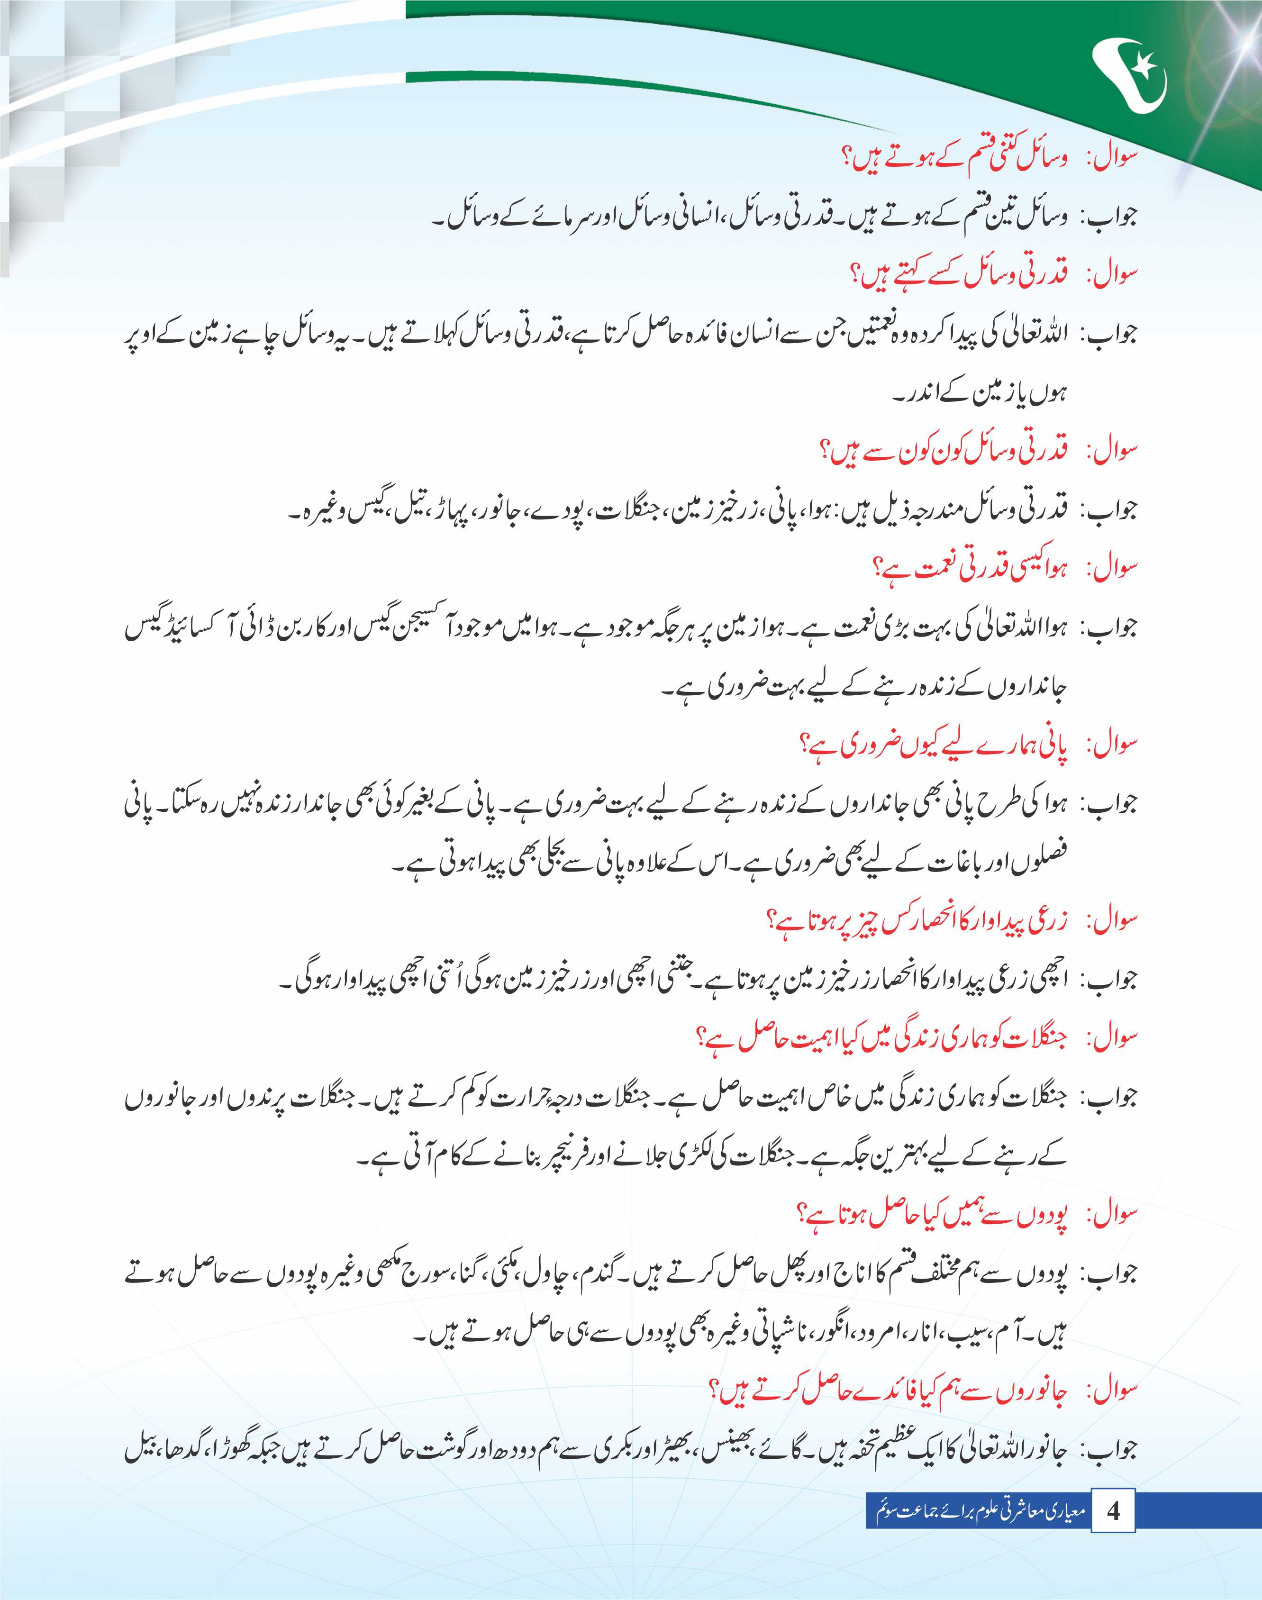 سوال: وسائل کتنی قسم کے ہوتے ہیں؟
جواب: وسائل تین قسم کے ہوتے ہیں۔ قدرتی وسائل، انسانی وسائل اور سرمائے کے وسائل۔
سوال: قدرتی وسائل کسے کہتے ہیں؟
جواب: اللہ تعالیٰ کی پیدا کردہ وہ نعمتیں جن سے انسان فائدہ حاصل کرتا ہے، قدرتی وسائل کہلاتے ہیں۔ یہ وسائل چاہے زمین کے اوپر
ہوں یا زمین کے اندر۔
سوال: قدرتی وسائل کون کون سے ہیں؟
جواب: قدرتی وسائل مندرجہ ذیل ہیں: ہوا، پانی، زرخیز زمین، جنگلات، پودے، جانور، پہاڑ، تیل، گیس وغیرہ۔
سوال: ہوا کیسی قدرتی نعمت ہے؟
جواب: ہوا اللہ تعالیٰ کی بہت بڑی نعمت ہے۔ ہوا زمین پر ہر جگہ موجود ہے۔ ہوا میں موجود آکسیجن گیس اور کاربن ڈائی آکسائیڈ گیس
جانداروں کے زندہ رہنے کے لیے بہت ضروری ہے۔
سوال: پانی ہمارے لیے کیوں ضروری ہے؟
جواب: ہوا کی طرح پانی بھی جانداروں کے زندہ رہنے کے لیے بہت ضروری ہے۔ پانی کے بغیر کوئی بھی جاندار زندہ نہیں رہ سکتا۔ پانی
فصلوں اور باغات کے لیے بھی ضروری ہے۔ اس کے علاوہ پانی سے بجلی بھی پیدا ہوتی ہے۔
سوال: زرعی پیداوار کا انحصار کس چیز پر ہوتا ہے؟
جواب: اچھی زرعی پیداوار کا انحصار زرخیز زمین پر ہوتا ہے۔ جتنی اچھی اور زرخیز زمین ہوگی اُتنی اچھی پیداوار ہوگی۔
سوال: جنگلات کو ہماری زندگی میں کیا اہمیت حاصل ہے؟
جواب: جنگلات کو ہماری زندگی میں خاص اہمیت حاصل ہے۔ جنگلات درجۂ حرارت کو کم کرتے ہیں۔ جنگلات پرندوں اور جانوروں
کے رہنے کے لیے بہترین جگہ ہے۔ جنگلات کی لکڑی جلانے اور فرنیچر بنانے کے کام آتی ہے۔
سوال: پودوں سے ہمیں کیا حاصل ہوتا ہے؟
جواب: پودوں سے ہم مختلف قسم کا اناج اور پھل حاصل کرتے ہیں۔ گندم، چاول، مکئی، گنا، سورج مکھی وغیرہ پودوں سے حاصل ہوتے
ہیں۔ آم، سیب، انار، امرود، انگور، ناشپاتی وغیرہ بھی پودوں سے ہی حاصل ہوتے ہیں۔
سوال: جانوروں سے ہم کیا فائدے حاصل کرتے ہیں؟
جواب: جانور اللہ تعالیٰ کا ایک عظیم تحفہ ہیں۔ گائے، بھینس، بھیڑ اور بکری سے ہم دودھ اور گوشت حاصل کرتے ہیں جبکہ گھوڑا، گدھا، بیل
4 معیاری معاشرتی علوم برائے جماعت سوئم